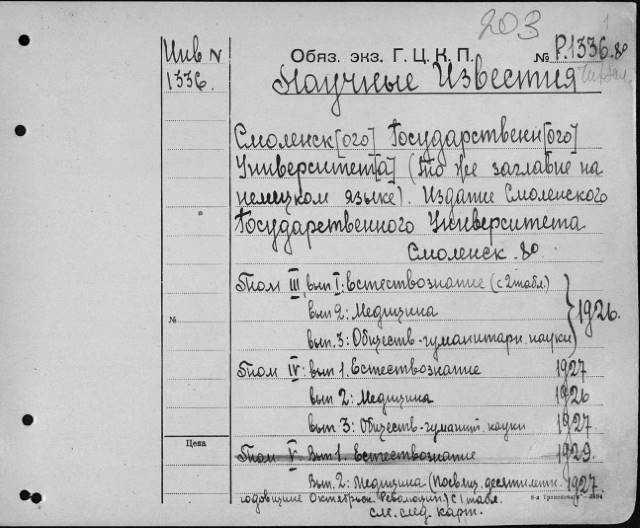 203
1
Инв N
1336.
Обяз. экз. Г. Ц. К. П.
№ Р.1336.80
Научные Известия
Смоленск[ого] Государственн[ого]
Университет[а] (То же заглавие на
немецком языке). Издатие Смоленского
Государственного Университета
Смоленск. 80
Том III, вып I: Естествознание (с 2 табл.)
вып 2: Медицина
вып. 3: Обществ-гуманитарн. науки
1926.
№
Том IV: вып 1. Естествознание 1927
вып 2: Медицина 1926
вып 3: Обществ-гуманит. науки 1927
Цена
Том V. Вып 1. Естествознание 1929.
Вып. 2: Медицина (Посвящ. десятилетн. 1927.
годовщине Октябрьск. Революции) с 1 табл.
см. след. карт.